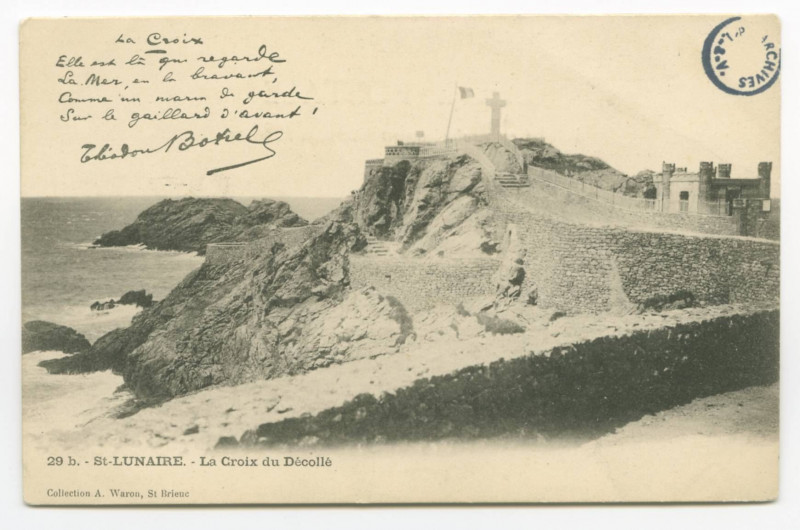 La Croix
Elle est là qui regarde
La Mer, en la bravant,
Comme un marin de garde
Sur le gaillard d'avant !
Théodore Botrel
ARCHIVES
I.-&-V.
29 b. - St-LUNAIRE. - La Croix du Décollé
Collection A. Waron, St Brieuc